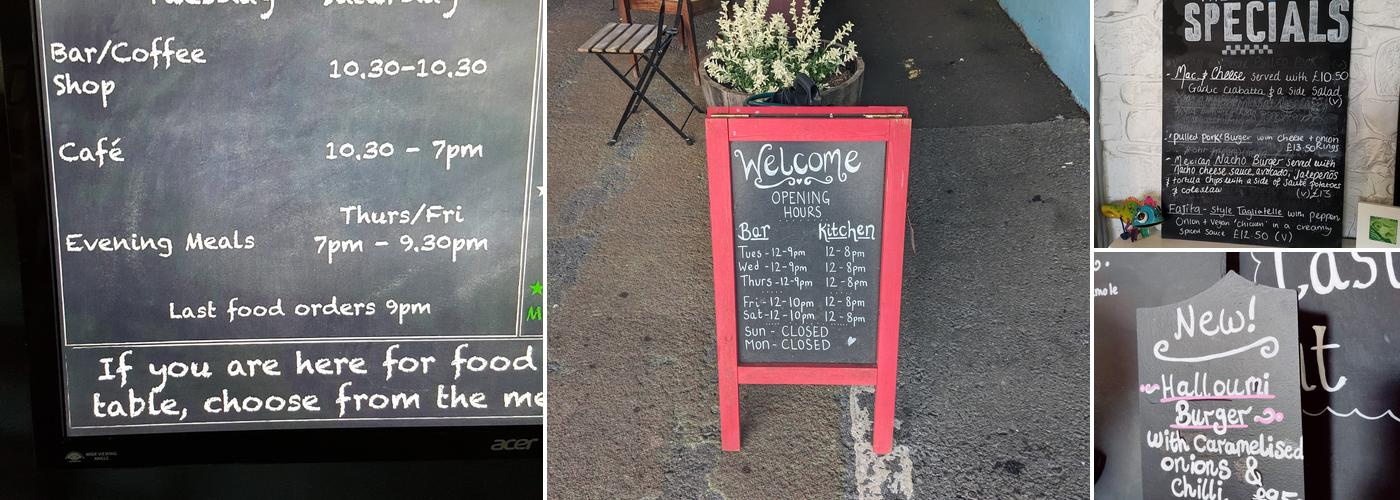 Tuesday - Saturday
Bar/Coffee
Shop
10.30-10.30
Café
10.30 - 7pm
Thurs/Fri
Evening Meals 7pm - 9.30pm
Last food orders 9pm
If you are here for food
table, choose from the me
acer
WIDE VIEWING
ANGLE
Welcome
OPENING
HOURS
Bar Kitchen
Tues - 12-9pm 12- 8pm
Wed - 12-9pm 12- 8pm
Thurs -12-9pm 12 - 8pm
Fri - 12-10pm 12- 8pm
Sat - 12-10pm 12 - 8pm
Sun - CLOSED
Mon - CLOSED
SPECIALS
- Mac & Cheese served with £10.50
Garlic Ciabatta & a side Salad
(v)
- Pulled Pork Burger with cheese + onion
£13.50 Rings
- Mexican Nacho Burger served with
Nacho cheese sauce, avocado, jalepeños
& tortilla chips with a side of sauté potatoes
& coleslaw (v) £13
Fajita - Style Tagliatelle with peppen,
Onion + vegan 'chicken' in a creamy
Spiced sauce £12.50 (V)
New!
Halloumi
Burger
with Caramelised
onions &
chilli